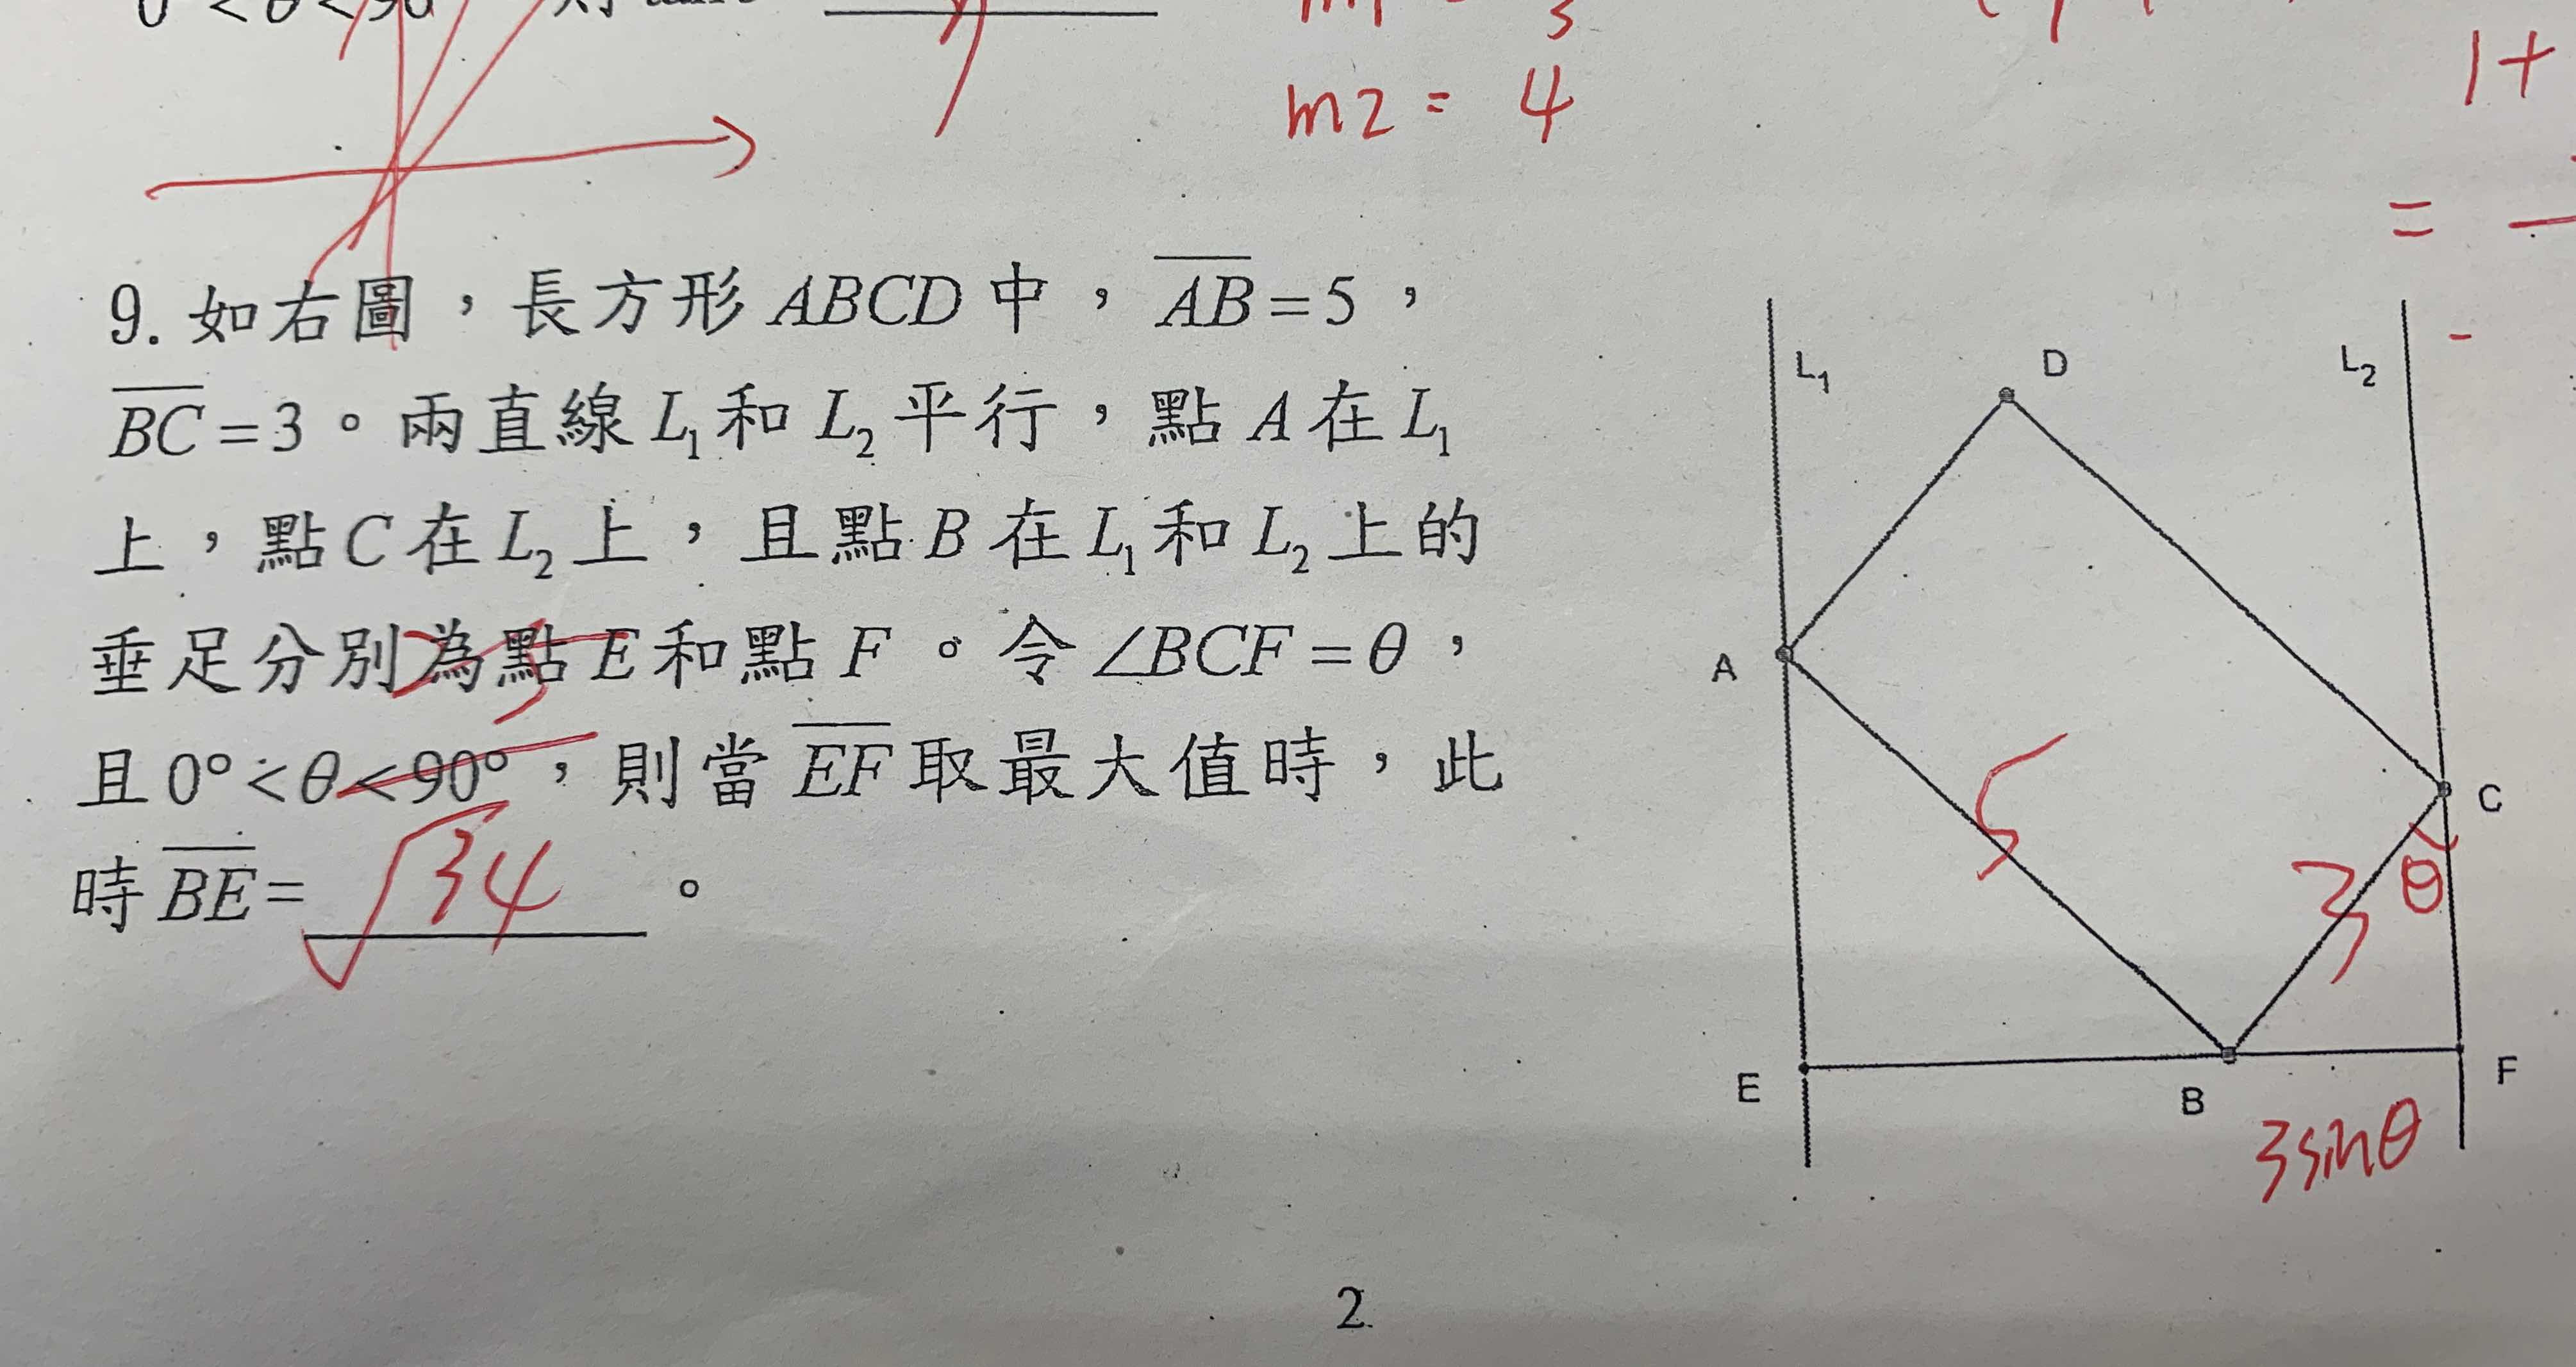 m2 = 4
1+
=
9. 如右圖，長方形 ABCD 中，AB=5，
BC=3。兩直線 L₁ 和 L₂ 平行，點 A 在 L₁
上，點 C 在 L₂ 上，且點 B 在 L₁ 和 L₂ 上的
垂足分別為點 E 和點 F。令∠BCF=θ，
且 0°<θ<90°，則當 EF 取最大值時，此
時 BE= √34 。
L₁
D
L₂
A
5
C
3
θ
E
B
F
3sinθ
2